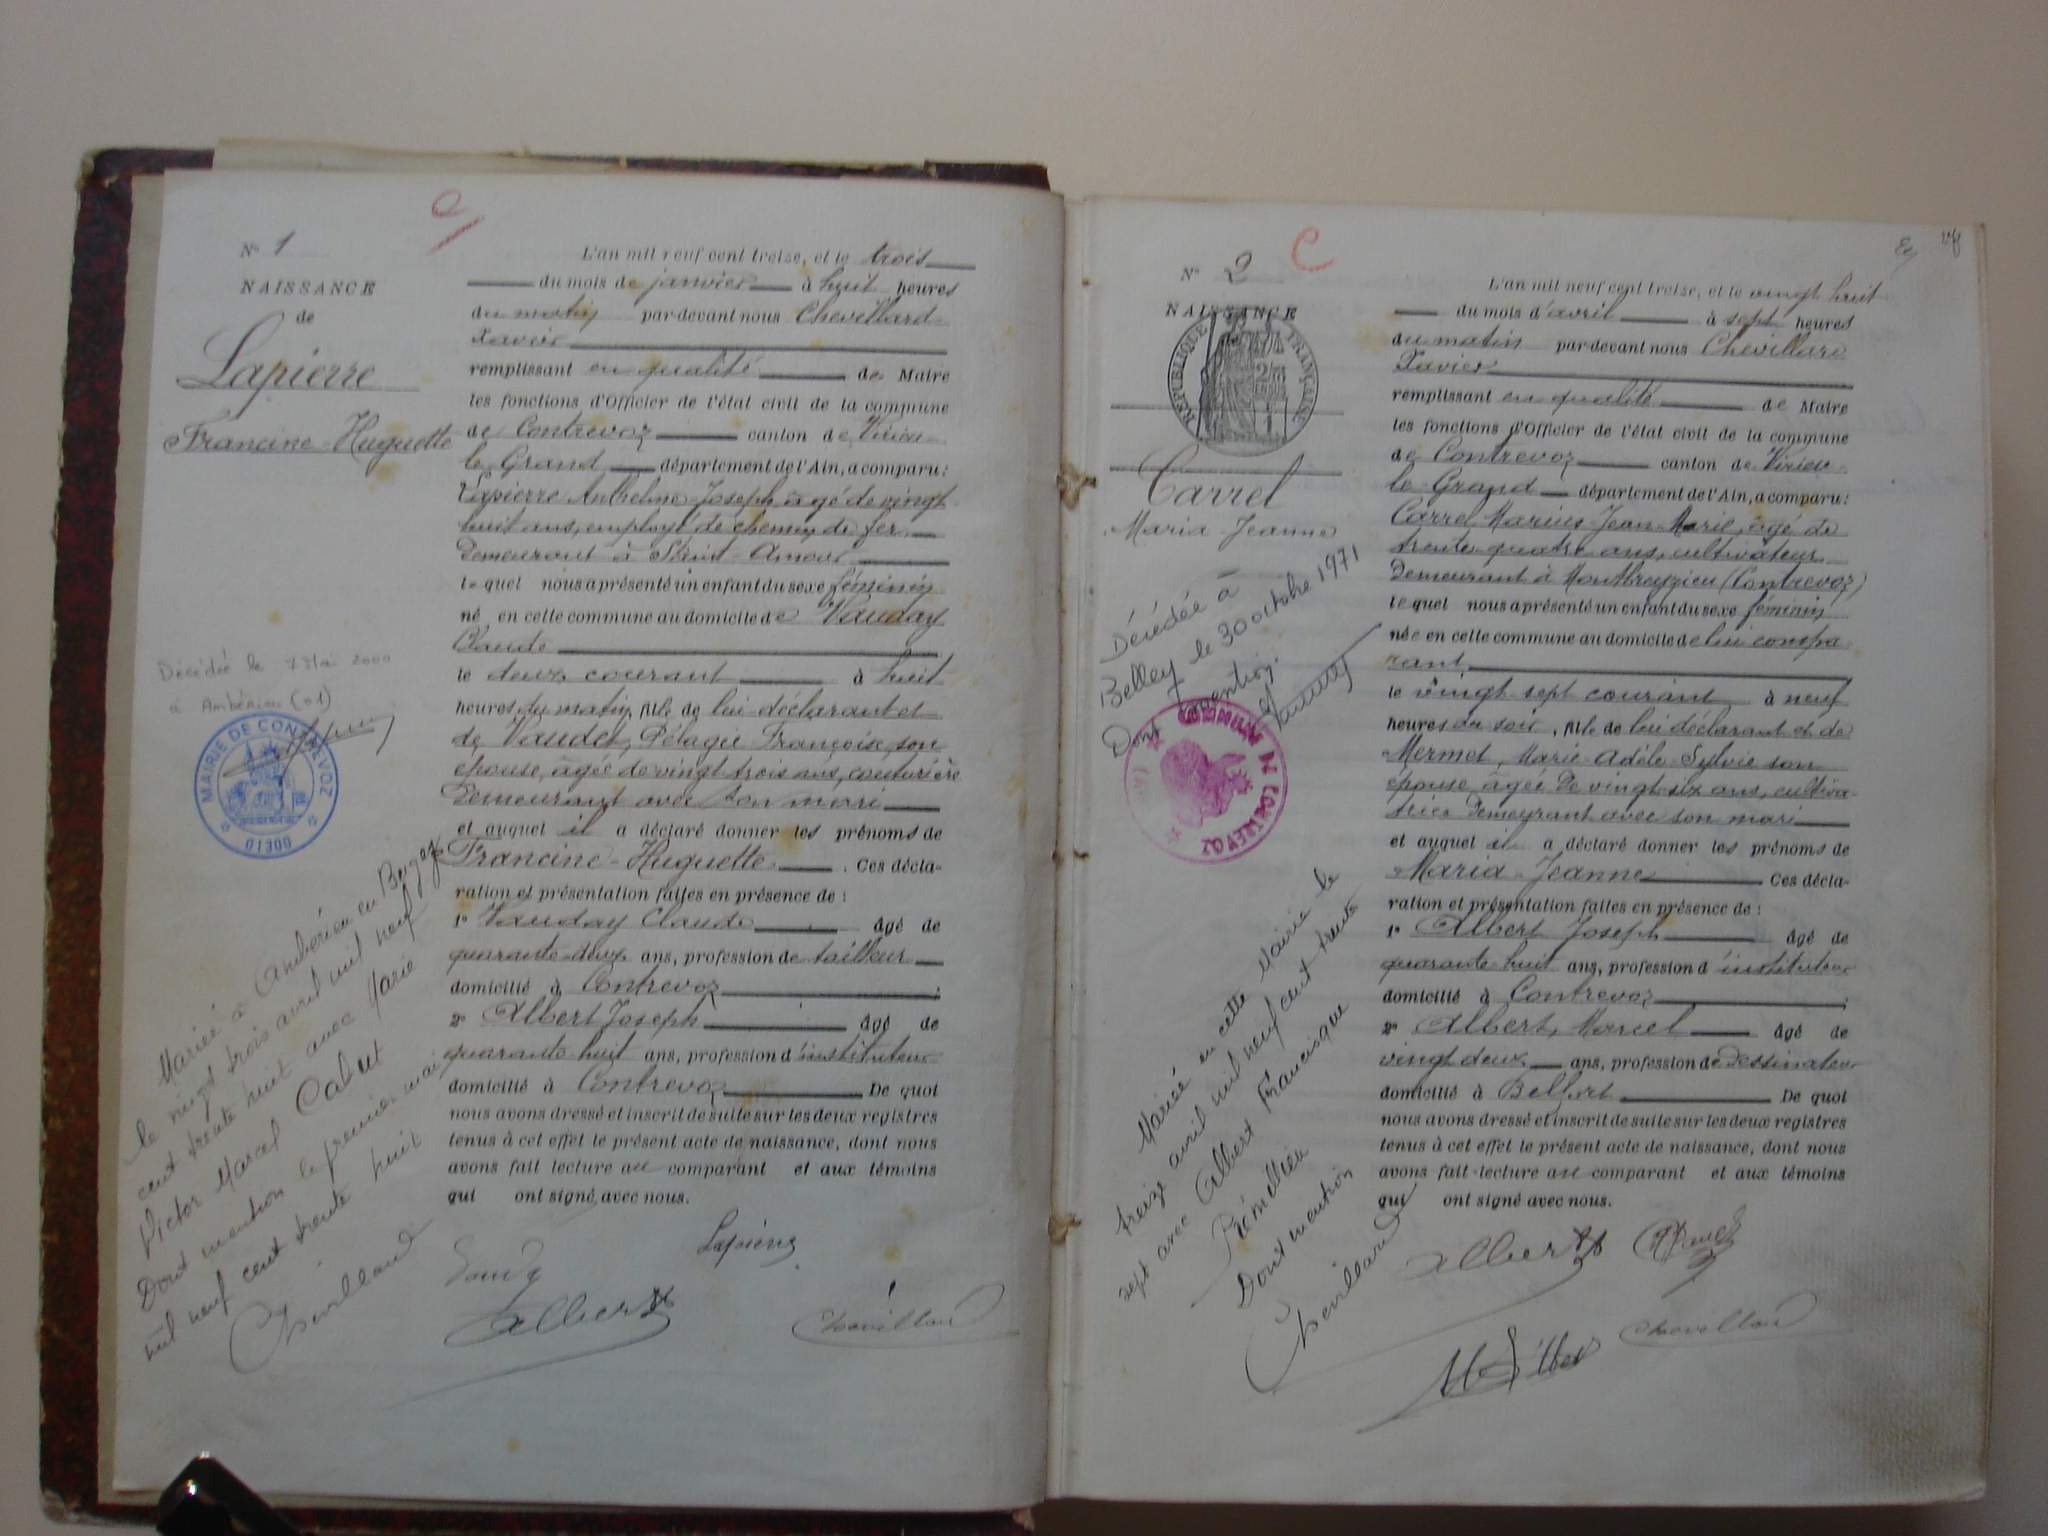 N° 1
NAISSANCE
de
Lapierre
Francine-Huguette
L'an mil neuf cent treize, et le trois
du mois de janvier à huit heures
du matin par-devant nous Chevillard
Xavier
remplissant en qualité de Maire
les fonctions d'Officier de l'état civil de la commune
de Contrevoz canton de Virieu-
le-Grand département de l'Ain, a comparu:
Lapierre Anthelme-Joseph, âgé de vingt
huit ans, employé de chemin de fer
Demeurant à Saint-Amour
le quel nous a présenté un enfant du sexe féminin
né en cette commune au domicile de Vauday
Claude
le deux courant à huit
heures du matin, fille de lui déclarant et
de Vaudet, Pélagie Françoise, son
épouse, âgée de vingt trois ans, couturière
Demeurant avec son mari
et auquel il a déclaré donner les prénoms de
Francine-Huguette. Ces décla-
ration et présentation faites en présence de:
1° Vauday Claude âgé de
quarante-deux ans, profession de tailleur
domicilié à Contrevoz;
2° Albert Joseph âgé de
quarante-huit ans, profession d'instituteur
domicilié à Contrevoz De quoi
nous avons dressé et inscrit de suite sur les deux registres
tenus à cet effet le présent acte de naissance, dont nous
avons fait lecture au comparant et aux témoins
qui ont signé avec nous.
Lapierre
Albert
Chevillard
Décédée le 7 Mai 2000
à Ambérieu (01)
MAIRIE DE CONTREVOZ
01300
Mariée à Ambérieu en Bugey
le vingt trois avril mil neuf
cent trente huit avec Marie
Victor Marcel Calvet
Dont mention le premier mai
mil neuf cent trente huit
Chevillard
N° 2
NAISSANCE
REPUBLIQUE FRANÇAISE
Carrel
Maria-Jeanne
L'an mil neuf cent treize, et le vingt huit
du mois d'avril à sept heures
du matin par-devant nous Chevillard
Xavier
remplissant en qualité de Maire
les fonctions d'Officier de l'état civil de la commune
de Contrevoz canton de Virieu-
le-Grand département de l'Ain, a comparu:
Carrel Marius-Jean-Marie, âgé de
trente-quatre ans, cultivateur
Demeurant à Montbreyzieu (Contrevoz)
le quel nous a présenté un enfant du sexe féminin
née en cette commune au domicile de lui compa-
rant
le vingt-sept courant à neuf
heures du soir, fille de lui déclarant et de
Mermet, Marie-Adèle-Sylvie son
épouse, âgée de vingt-six ans, cultiva-
trice Demeurant avec son mari
et auquel il a déclaré donner les prénoms de
Maria-Jeanne Ces décla-
ration et présentation faites en présence de:
1° Albert Joseph âgé de
quarante-huit ans, profession d'instituteur
domicilié à Contrevoz;
2° Albert, Marcel âgé de
vingt deux ans, profession de dessinateur
domicilié à Belfort De quoi
nous avons dressé et inscrit de suite sur les deux registres
tenus à cet effet le présent acte de naissance, dont nous
avons fait lecture au comparant et aux témoins
qui ont signé avec nous.
Albert
Chevillard
Décédée à
Belley le 30 octobre 1971
Dont mention.
COMMUNE DE CONTREVOZ
Mariée en cette Mairie le
treize avril mil neuf cent trente
sept avec Albert Francisque
Prémillieu
Dont mention
Chevillard